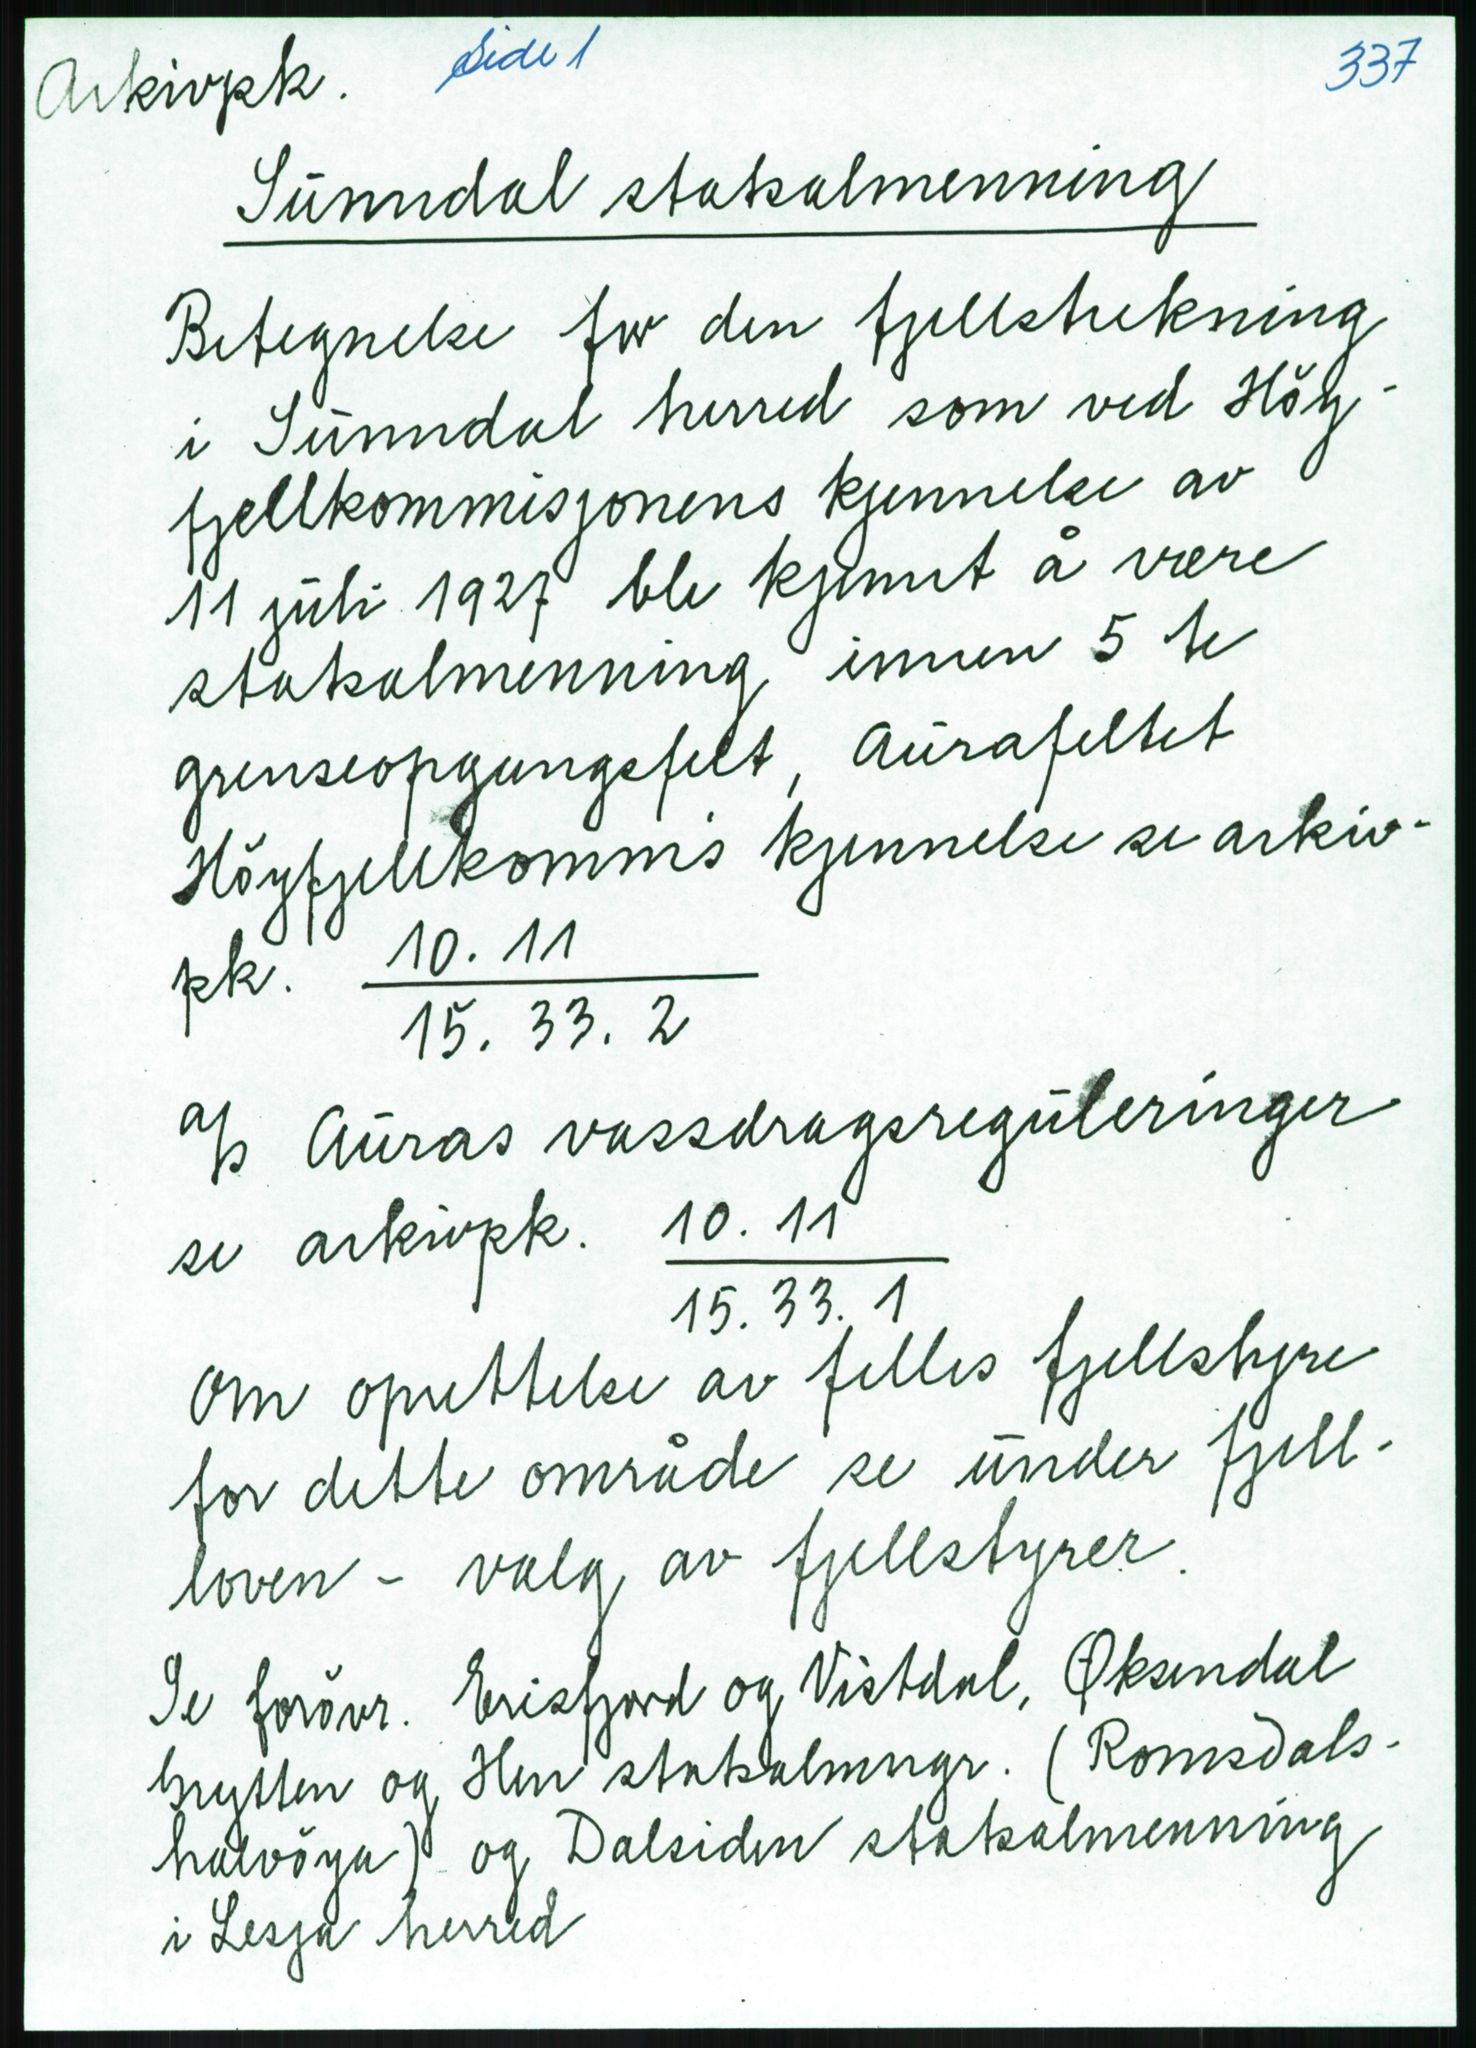 Arkivpk. Side 1 337
Sunndal statsalmenning
Betegnelse for den fjellstrekning
i Sunndal herred som ved Höy-
fjellkommisjonens kjennelse av
11 juli 1927 ble kjennt å være
statsalmenning innen 5 te
grenseopgangsfelt, Aurafeltet
Höyfjellkommis kjennelse se arkiv-
pk. 10. 11
15. 33. 2
a/s Auras vassdragsreguleringer
se arkivpk. 10. 11
15. 33. 1
Om oprettelse av felles fjellstyre
for dette område se under fjell-
loven - valg av fjellstyrer.
Se forövr. Erisfjord og Vistdal, Øksendal
Grytten og Hen statsalmngr. (Romsdals-
halvöya) og Dalsiden statsalmenning
i Lesja herred